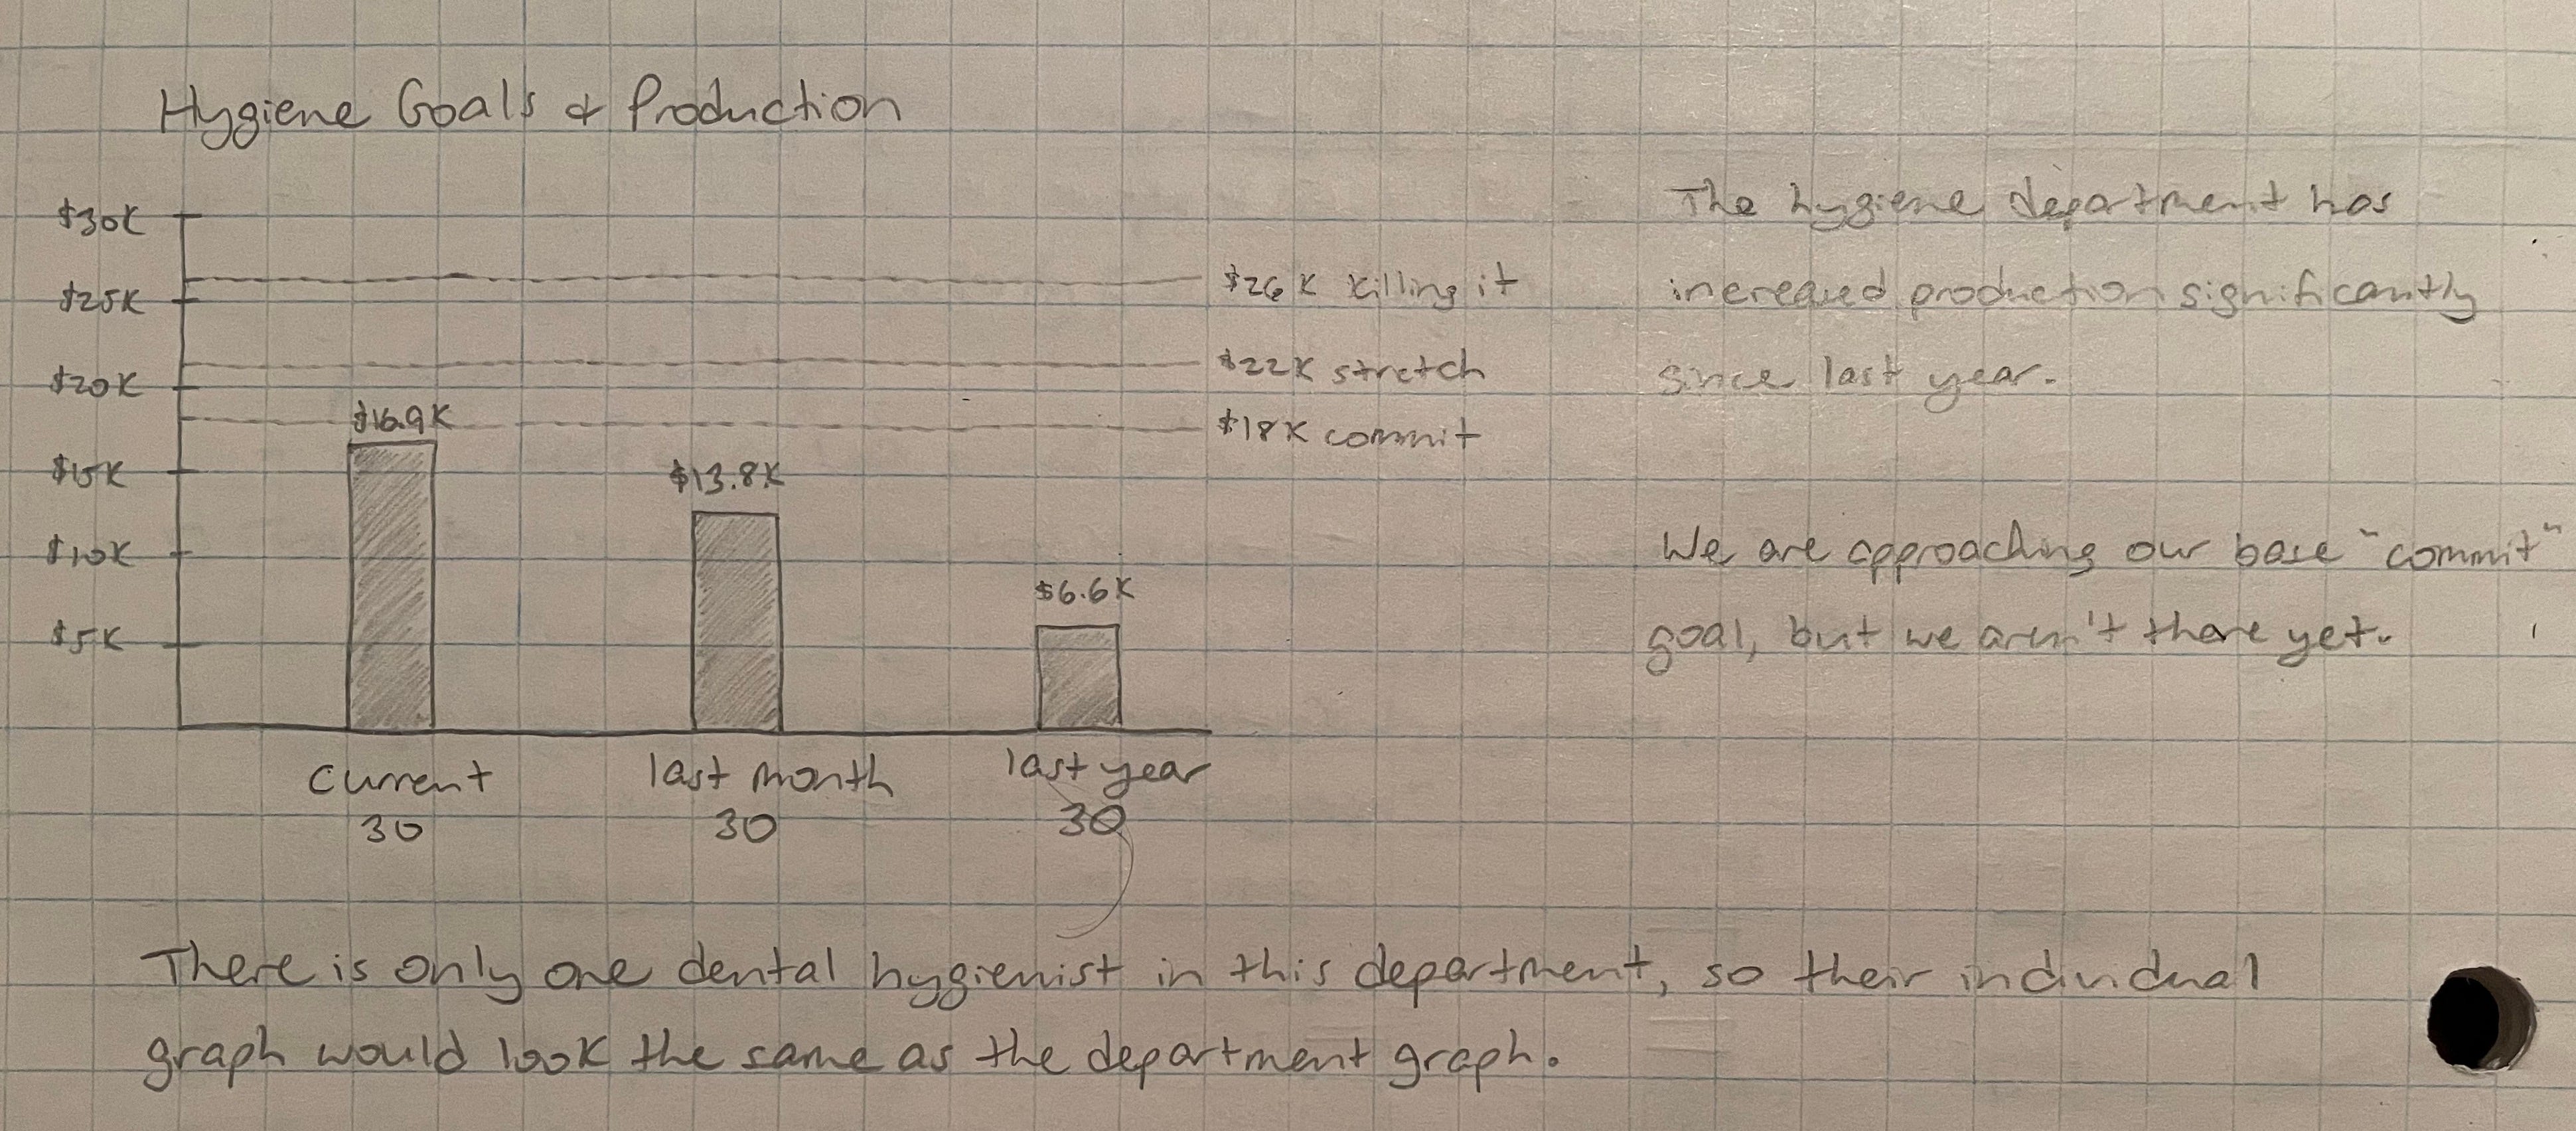 Hygiene Goals & Production
$30K
$25K
$20K
$15K
$10K
$5K
$26K killing it
$22K stretch
$18K commit
$16.9K
$13.8K
$6.6K
current
30
last month
30
last year
30
The hygiene department has
increased production significantly
since last year.
We are approaching our base "commit"
goal, but we aren't there yet.
There is only one dental hygienist in this department, so their individual
graph would look the same as the department graph.